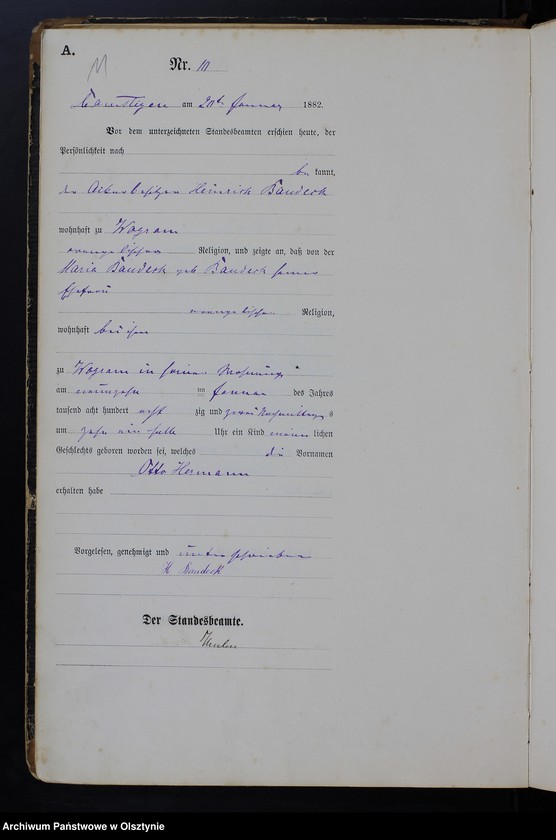 A.
Nr. 10
am 20ten Januar 1882.
Vor dem unterzeichneten Standesbeamten erschien heute, der
Persönlichkeit nach
be kannt,
der Heinrich Baudeck
wohnhaft zu Wogram
evangelischer Religion, und zeigte an, daß von der
Maria Baudeck geb Baudeck seiner
Ehefrau
evangelischer Religion,
wohnhaft bei ihm
zu Wogram in seiner Wohnung
am neunzehn im Januar des Jahres
tausend acht hundert acht zig und zwei Nachmittags
um zehn ein halb Uhr ein Kind männ lichen
Geschlechts geboren worden sei, welches die Vornamen
Otto Hermann
erhalten habe
Vorgelesen, genehmigt und unterschrieben
H Baudeck
Der Standesbeamte.
Archiwum Państwowe w Olsztynie